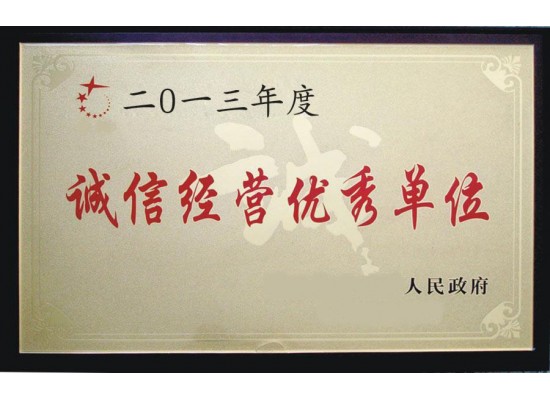 二〇一三年度
诚信经营优秀单位
诚
人民政府